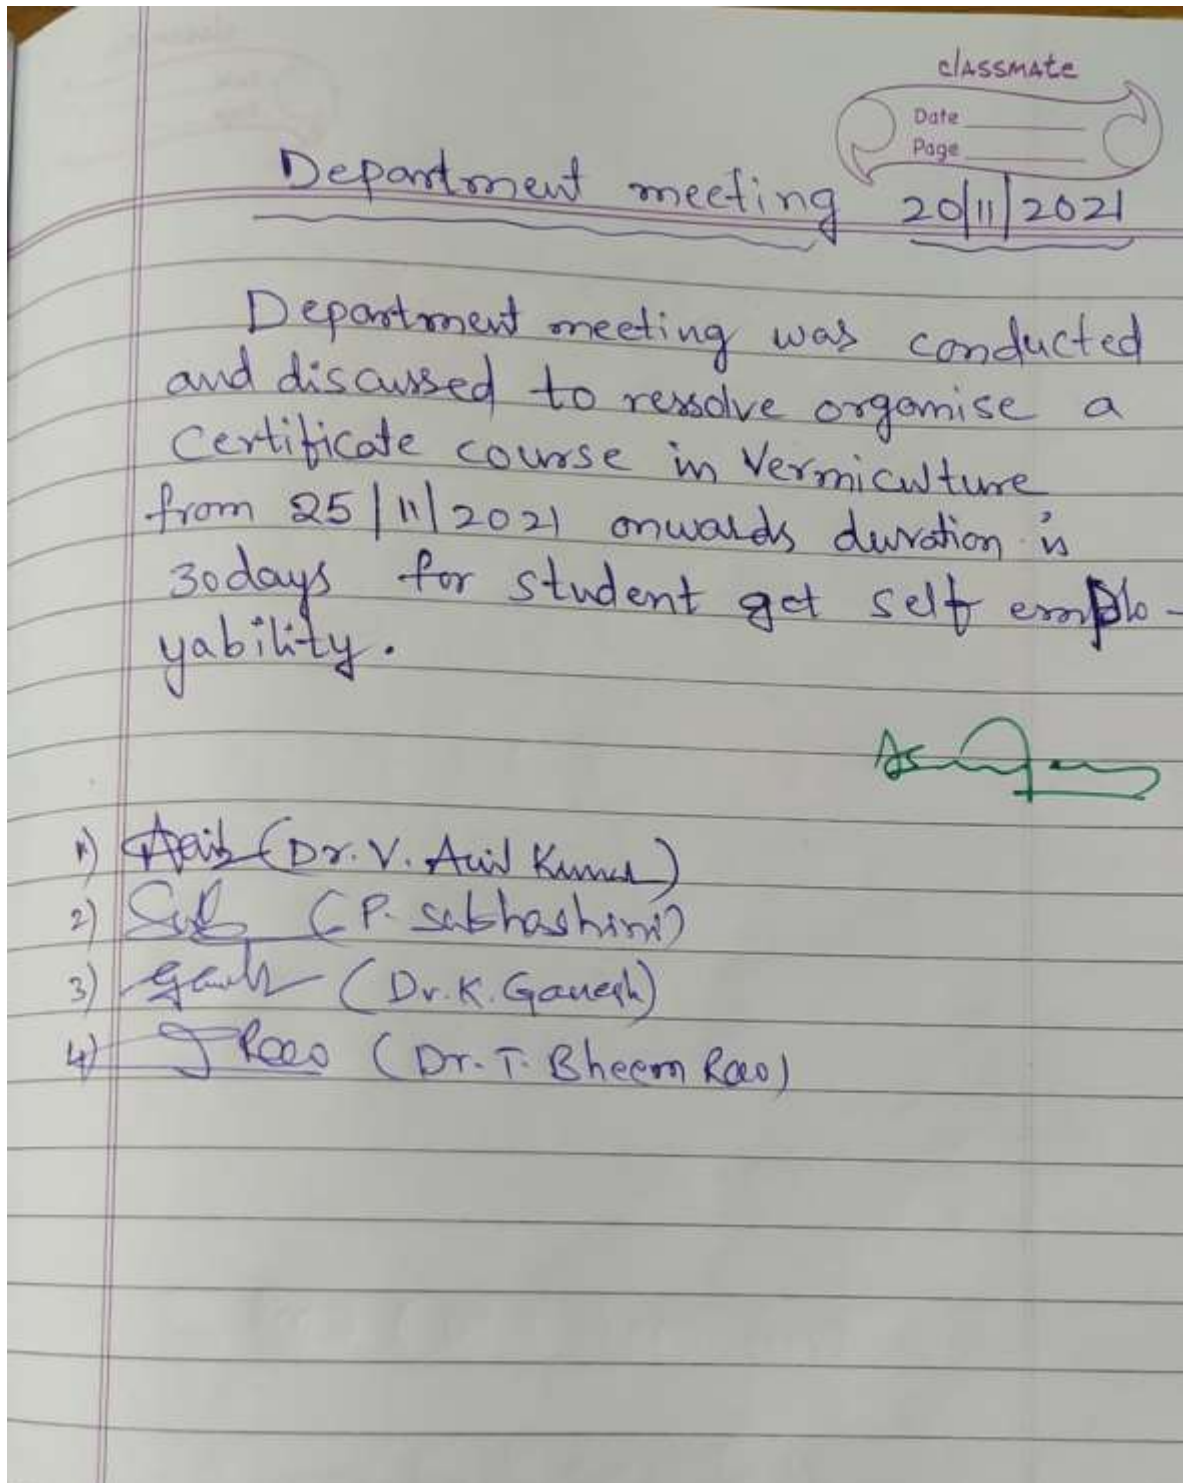 classmate
Date
Page
Department meeting 20/11/2021
Department meeting was conducted
and discussed to ressolve organise a
Certificate course in Vermiculture
from 25/11/2021 onwards duration is
30days for student get self emplo-
yability.
1) (Dr. V. Anil Kumar)
2) (P. Subhashini)
3) (Dr. K. Ganesh)
4) T Rao (Dr. T. Bheem Rao)